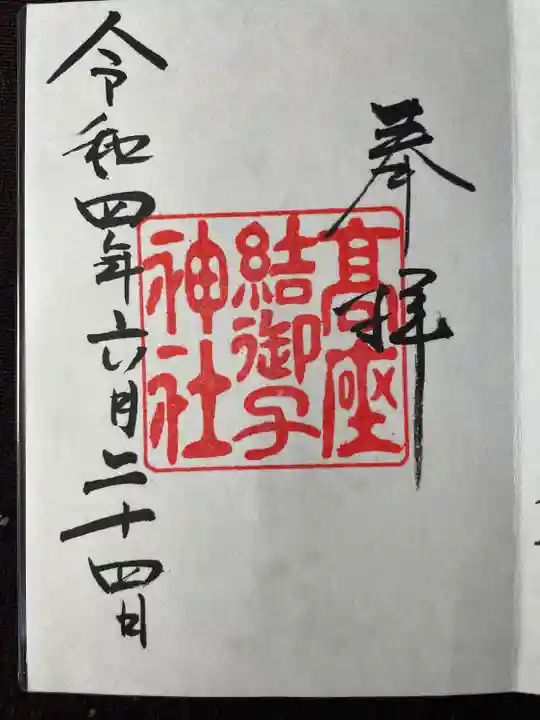 奉拝
髙座
結御子
神社
令和四年六月二十四日